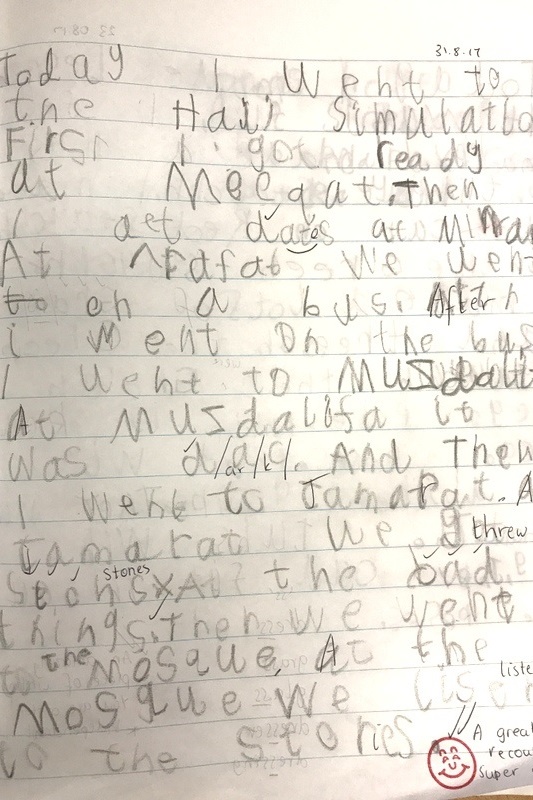 31.8.17
Today I went to
the Hajj Simulatio
First i got ready
at Meeqat. Then
I aet dates at Mina
At Arafat We went
to on a bus. After
i went on the bus
I went to Muzdali
At Muzdalifa it
was dark. And Then
I went to Jamarat. A
Jamarat We threw
stones
Stons At the bad
things. Then We went
to the Mosque. At the
listen
Mosque We lisen
to the Stories
A great
recou
Super